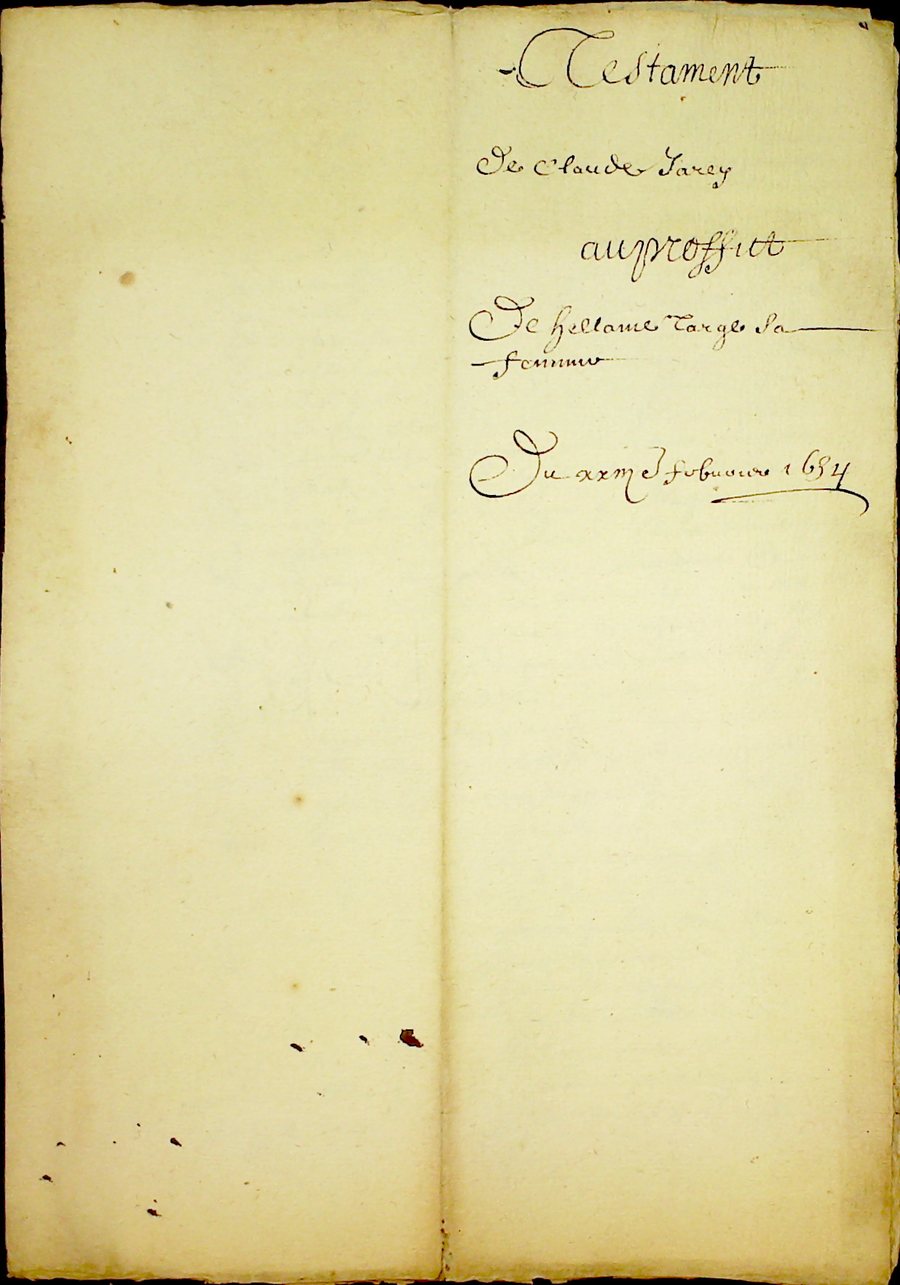 Testament
De Claude Jarey
auproffict
De hellaine Targe Sa
femme
Du xxiij e febvrier 1654